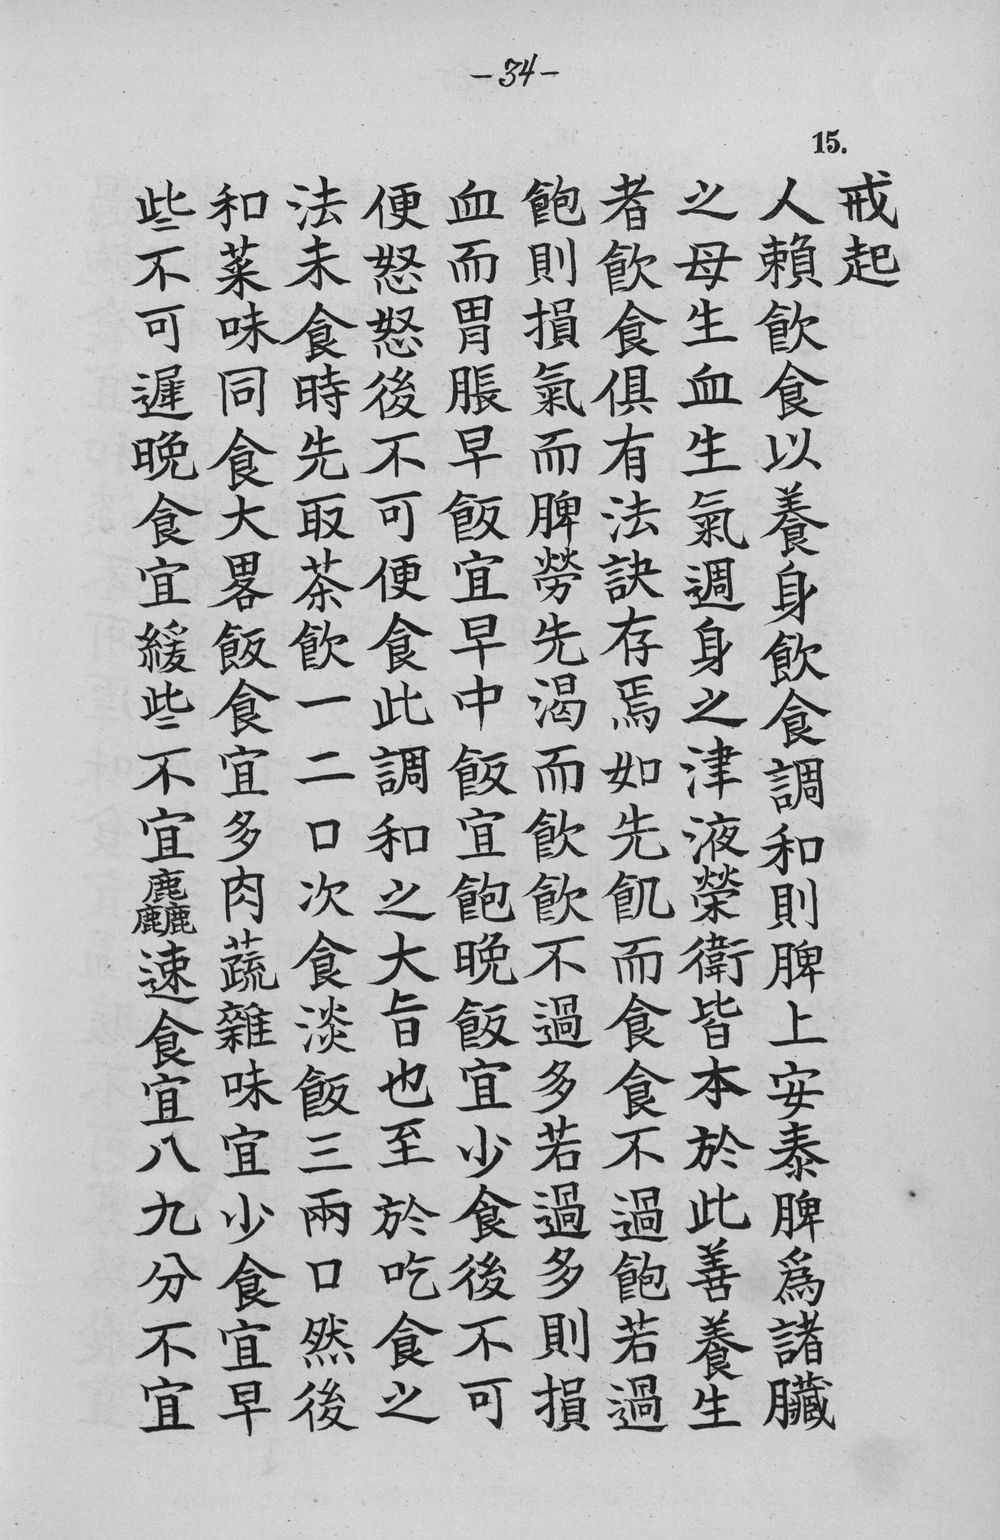 -34-
15.
戒起
人賴飮食以養身飮食調和則脾上安泰脾爲諸臟
之母生血生氣週身之津液榮衛皆本於此善養生
者飮食俱有法訣存焉如先飢而食食不過飽若過
飽則損氣而脾勞先渴而飮飮不過多若過多則損
血而胃脹早飯宜早中飯宜飽晚飯宜少食後不可
便怒怒後不可便食此調和之大旨也至於吃食之
法未食時先取茶飮一二口次食淡飯三兩口然後
和菜味同食大畧飯食宜多肉蔬雜味宜少食宜早
些不可遲晚食宜緩些不宜麤速食宜八九分不宜